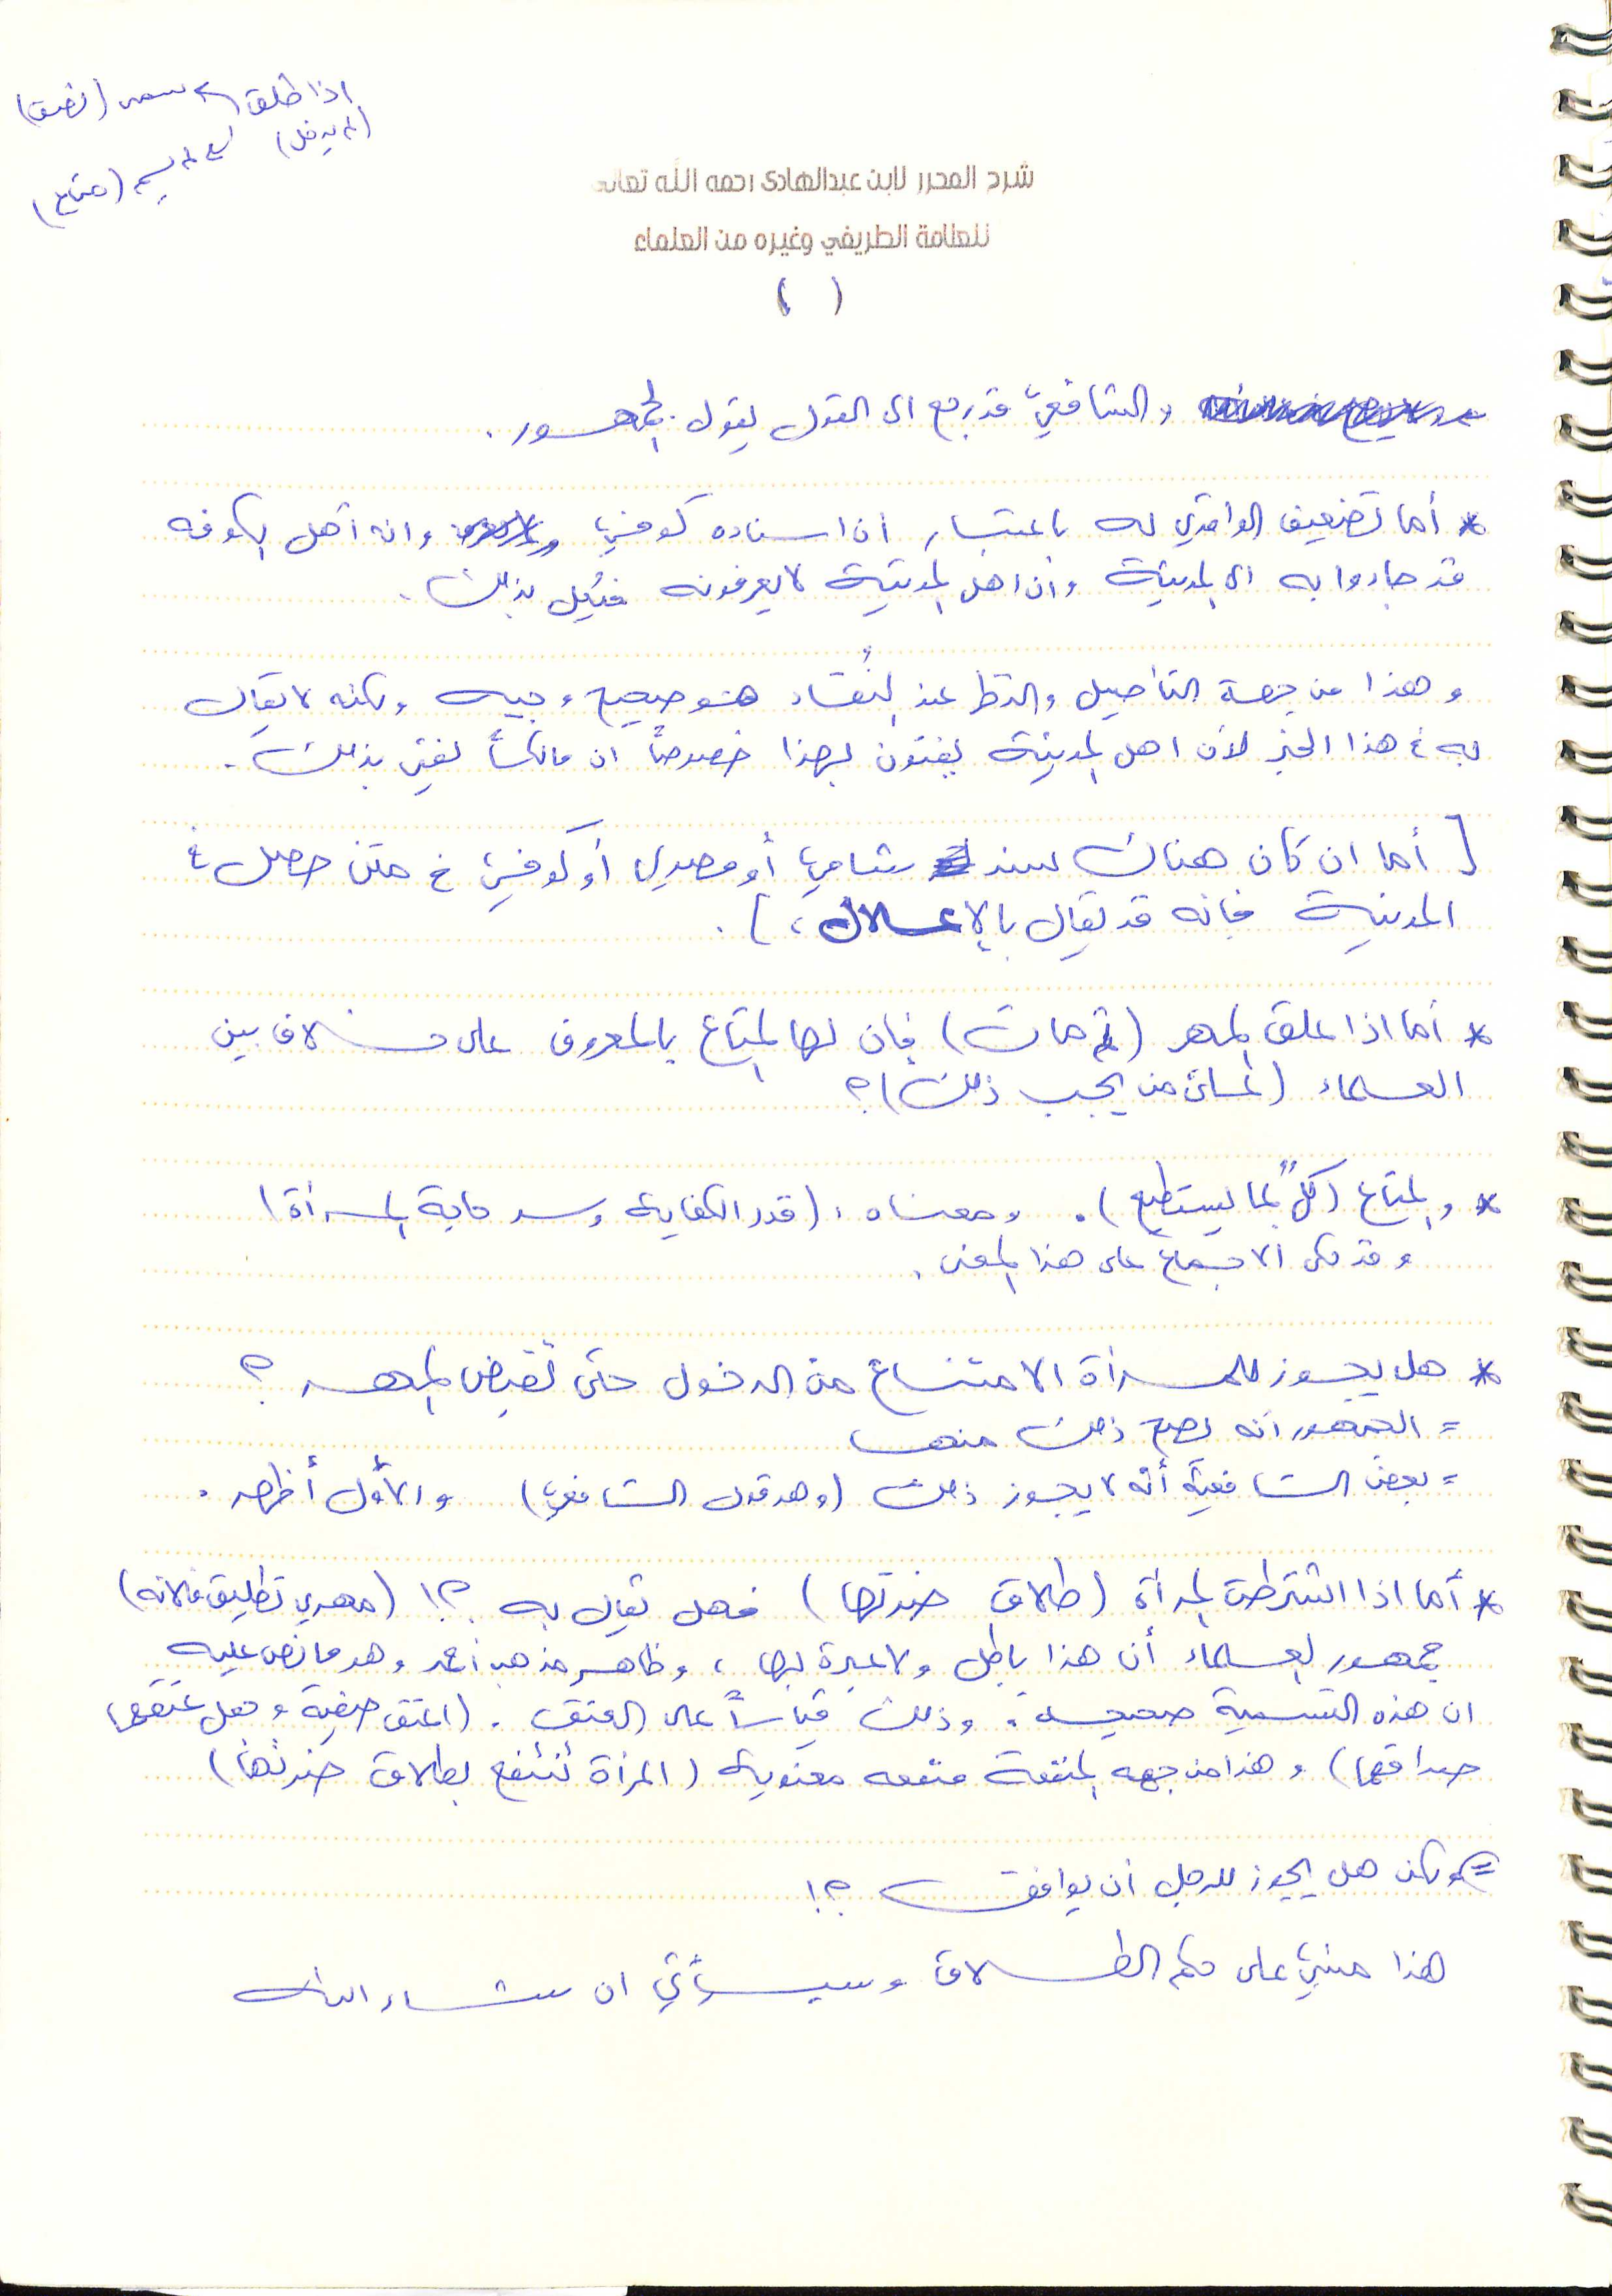 اذا طلق سمى (نصف)
(لم يدخل) لم يسم (متاع)
شرح المحرر لابن عبدالهادى رحمه الله تعالى
للعلامة الطريفي وغيره من العلماء
( )
والشافعيّ قد رجع الى القول بقول الجمهور .
* أما تضعيف الواقدي له باعتبار أن اسناده كوفيّ وانه أهل الكوفه
قد جاءوا به الى المدينة وأن اهل المدينة لا يعرفونه فيُعل بذلك .
وهذا من جهة التأصيل والنظر عند النُقاد هو صحيح وجيه ولكنه لا يقال
به في هذا الخبر لأن اهل المدينة يفتون بهذا خصوصاً ان مالكاً يفتي بذلك .
[ أما ان كان هناك سند شاميّ أو مصري أو كوفيّ في متن حصل في
المدينة فانه قد يقال بالإعلال ، ] .
* أما اذا علق المهر (ثم مات) فإن لها المتاع بالمعروف على خلاف بين
العلماء ( من يجب ذلك) ؟
* والمتاع (كلٌ بما يستطيع) . ومعناه : (قدر الكفاية وسد حاجة المرأة)
وقد حكى الاجماع على هذا المعنى .
* هل يجوز للمرأة الامتناع من الدخول حتى تقبض المهر ؟
= الجمهور أنه يصح ذلك منها
= بعض الشافعية أنه لا يجوز ذلك (وهو قول الشافعيّ) والأول أظهر .
* أما اذا اشترطت المرأة (طلاق ضرتها) فهل يقال به ؟! (مهري تطليق فلانه)
جمهور العلماء أن هذا باطل ولا عبرة بها ، وظاهر مذهب أحمد وهو ما نص عليه
ان هذه التسمية صحيحه . وذلك قياساً على العتق . (اعتق صفية وجعل عتقها
صداقها) وهذا من جهه المنفعة منفعه معنوية (المرأة تنتفع بطلاق ضرتها)
= ولكن هل يجوز للرجل أن يوافق ؟!
هذا مبنيّ على حكم الطلاق وسيأتي ان شاء الله